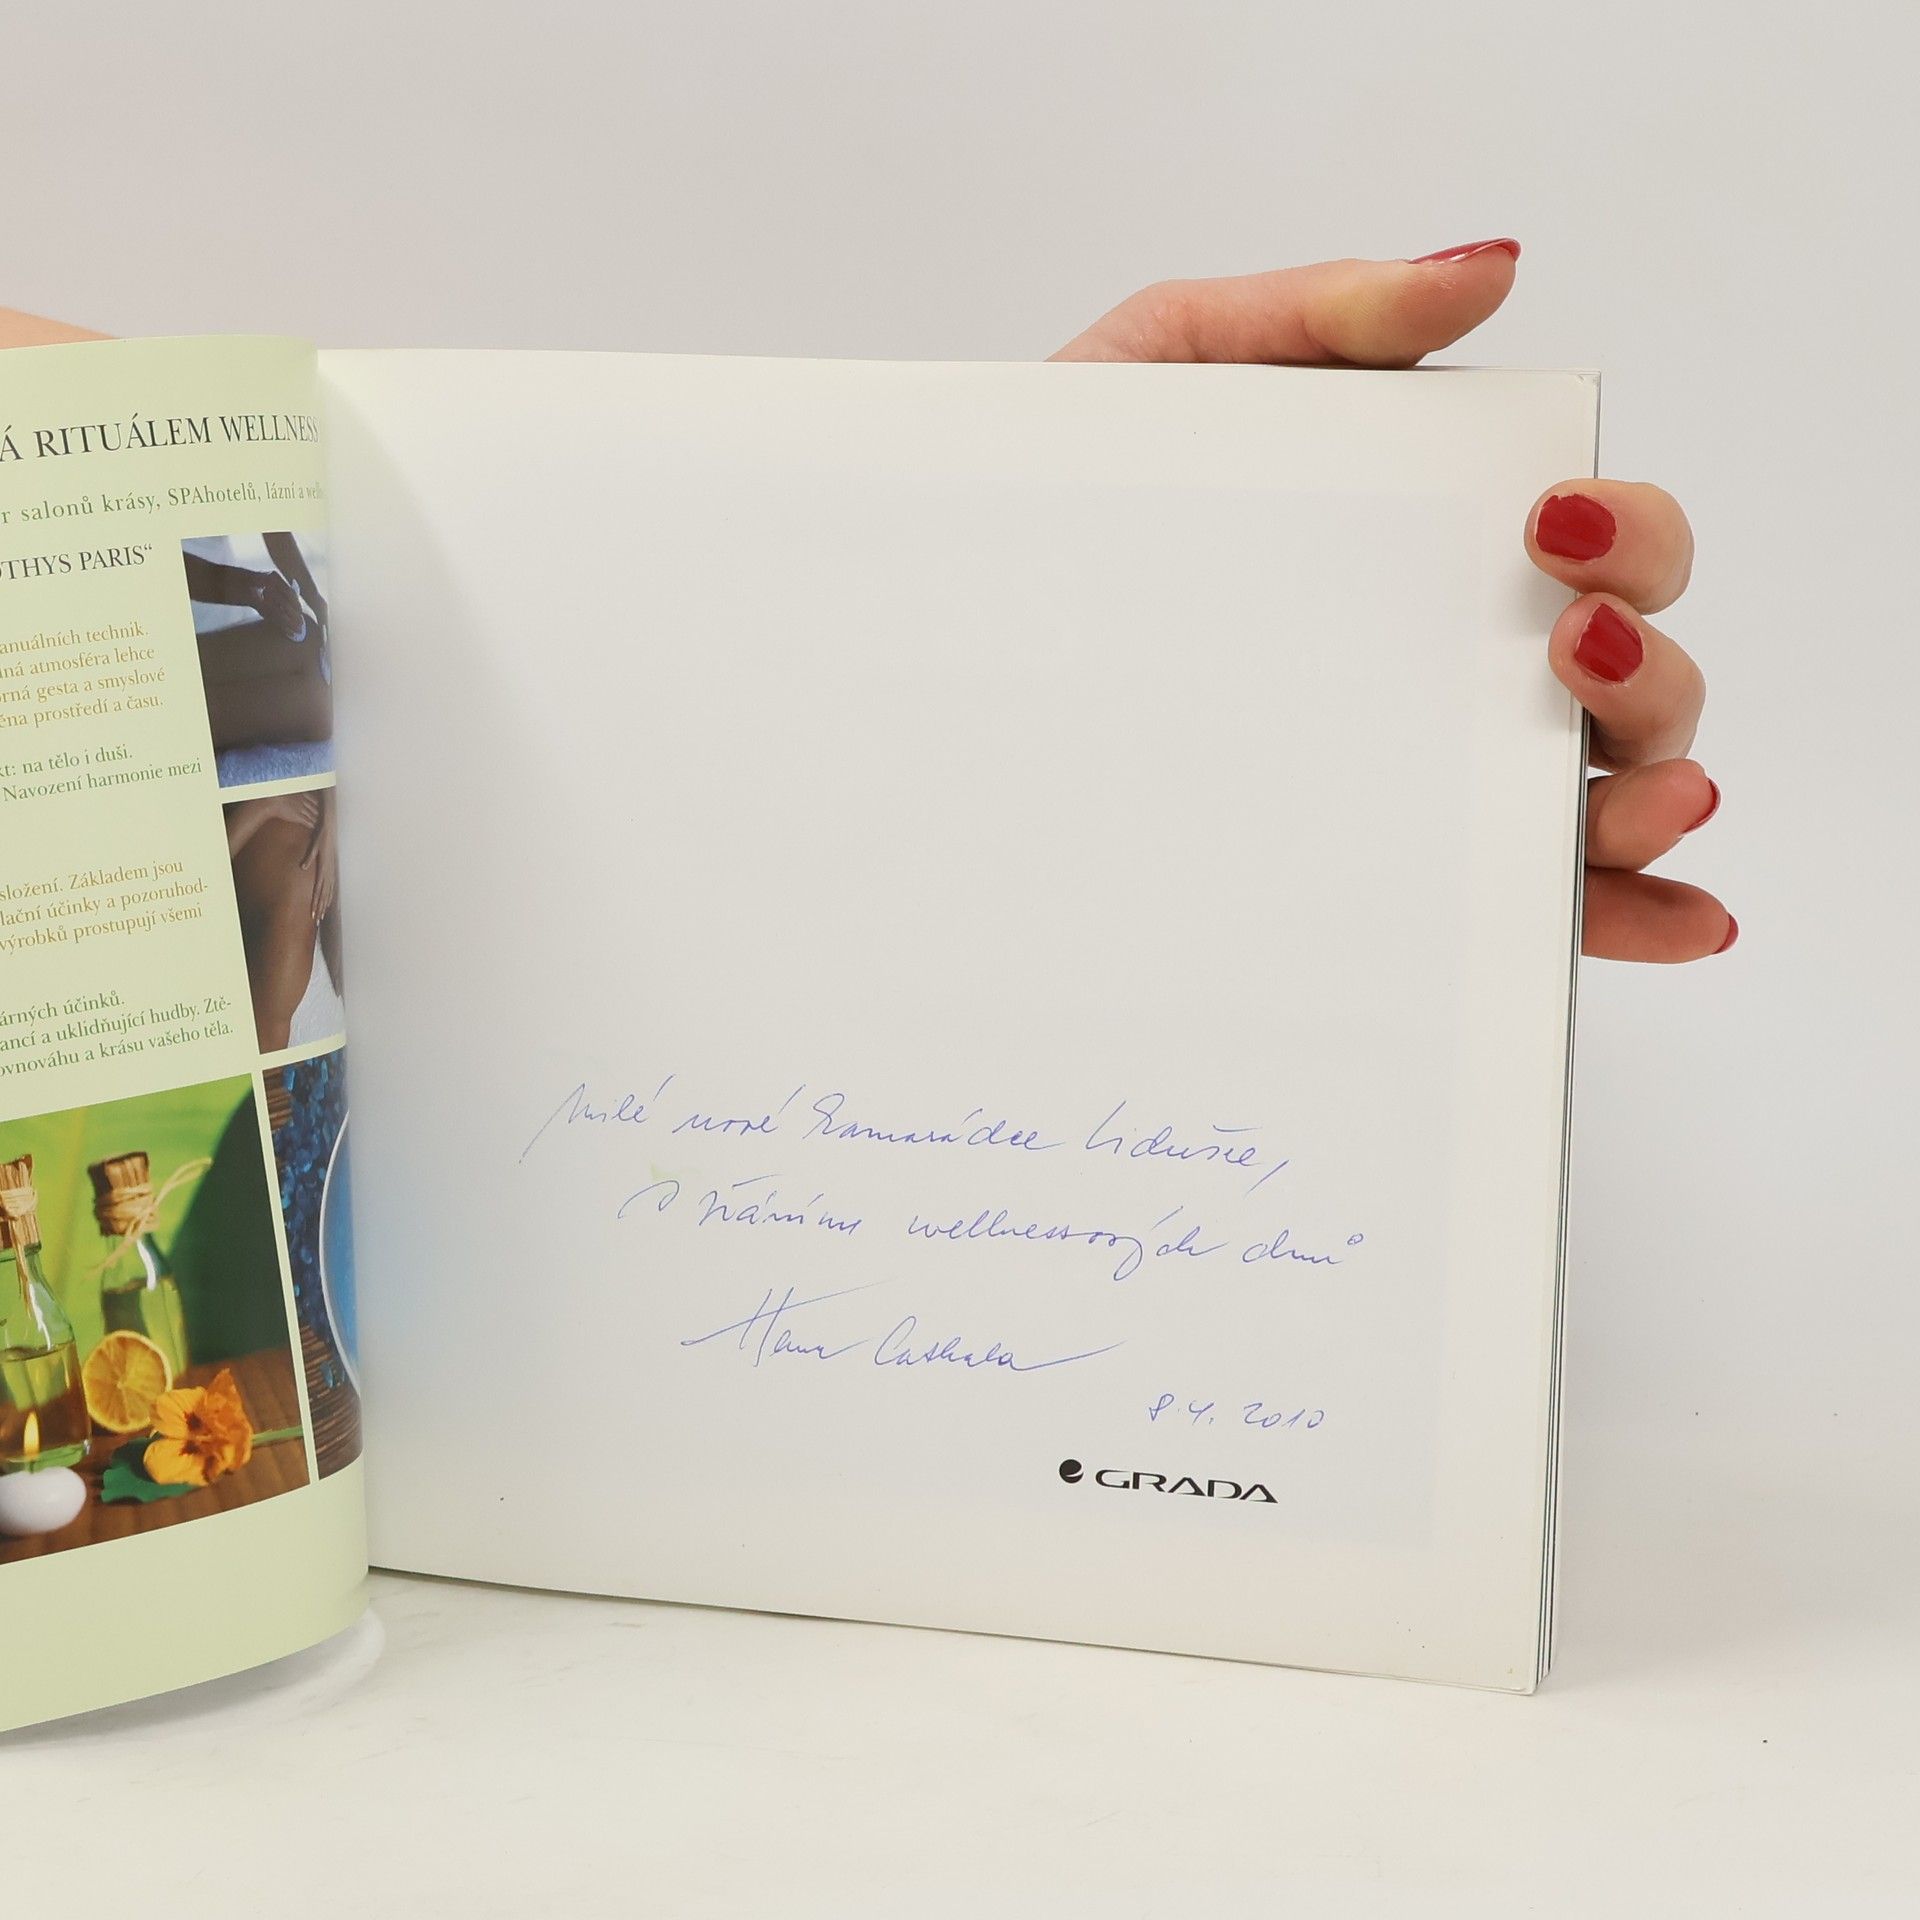 Á RITUÁLEM WELLNESS
r salonů krásy, SPAhotelů, lázní a well
OTHYS PARIS“
anuálních technik.
lná atmosféra lehce
orná gesta a smyslové
ěna prostředí a času.
kt: na tělo i duši.
Navození harmonie mezi
složení. Základem jsou
lační účinky a pozoruhod-
výrobků prostupují všemi
árných účinků.
ancí a uklidňující hudby. Ztě-
ovnováhu a krásu vašeho těla.
Milé nové kamarádce Lidušce,
s přáním wellnessových dnů
Hana
8.4. 2010
GRADA